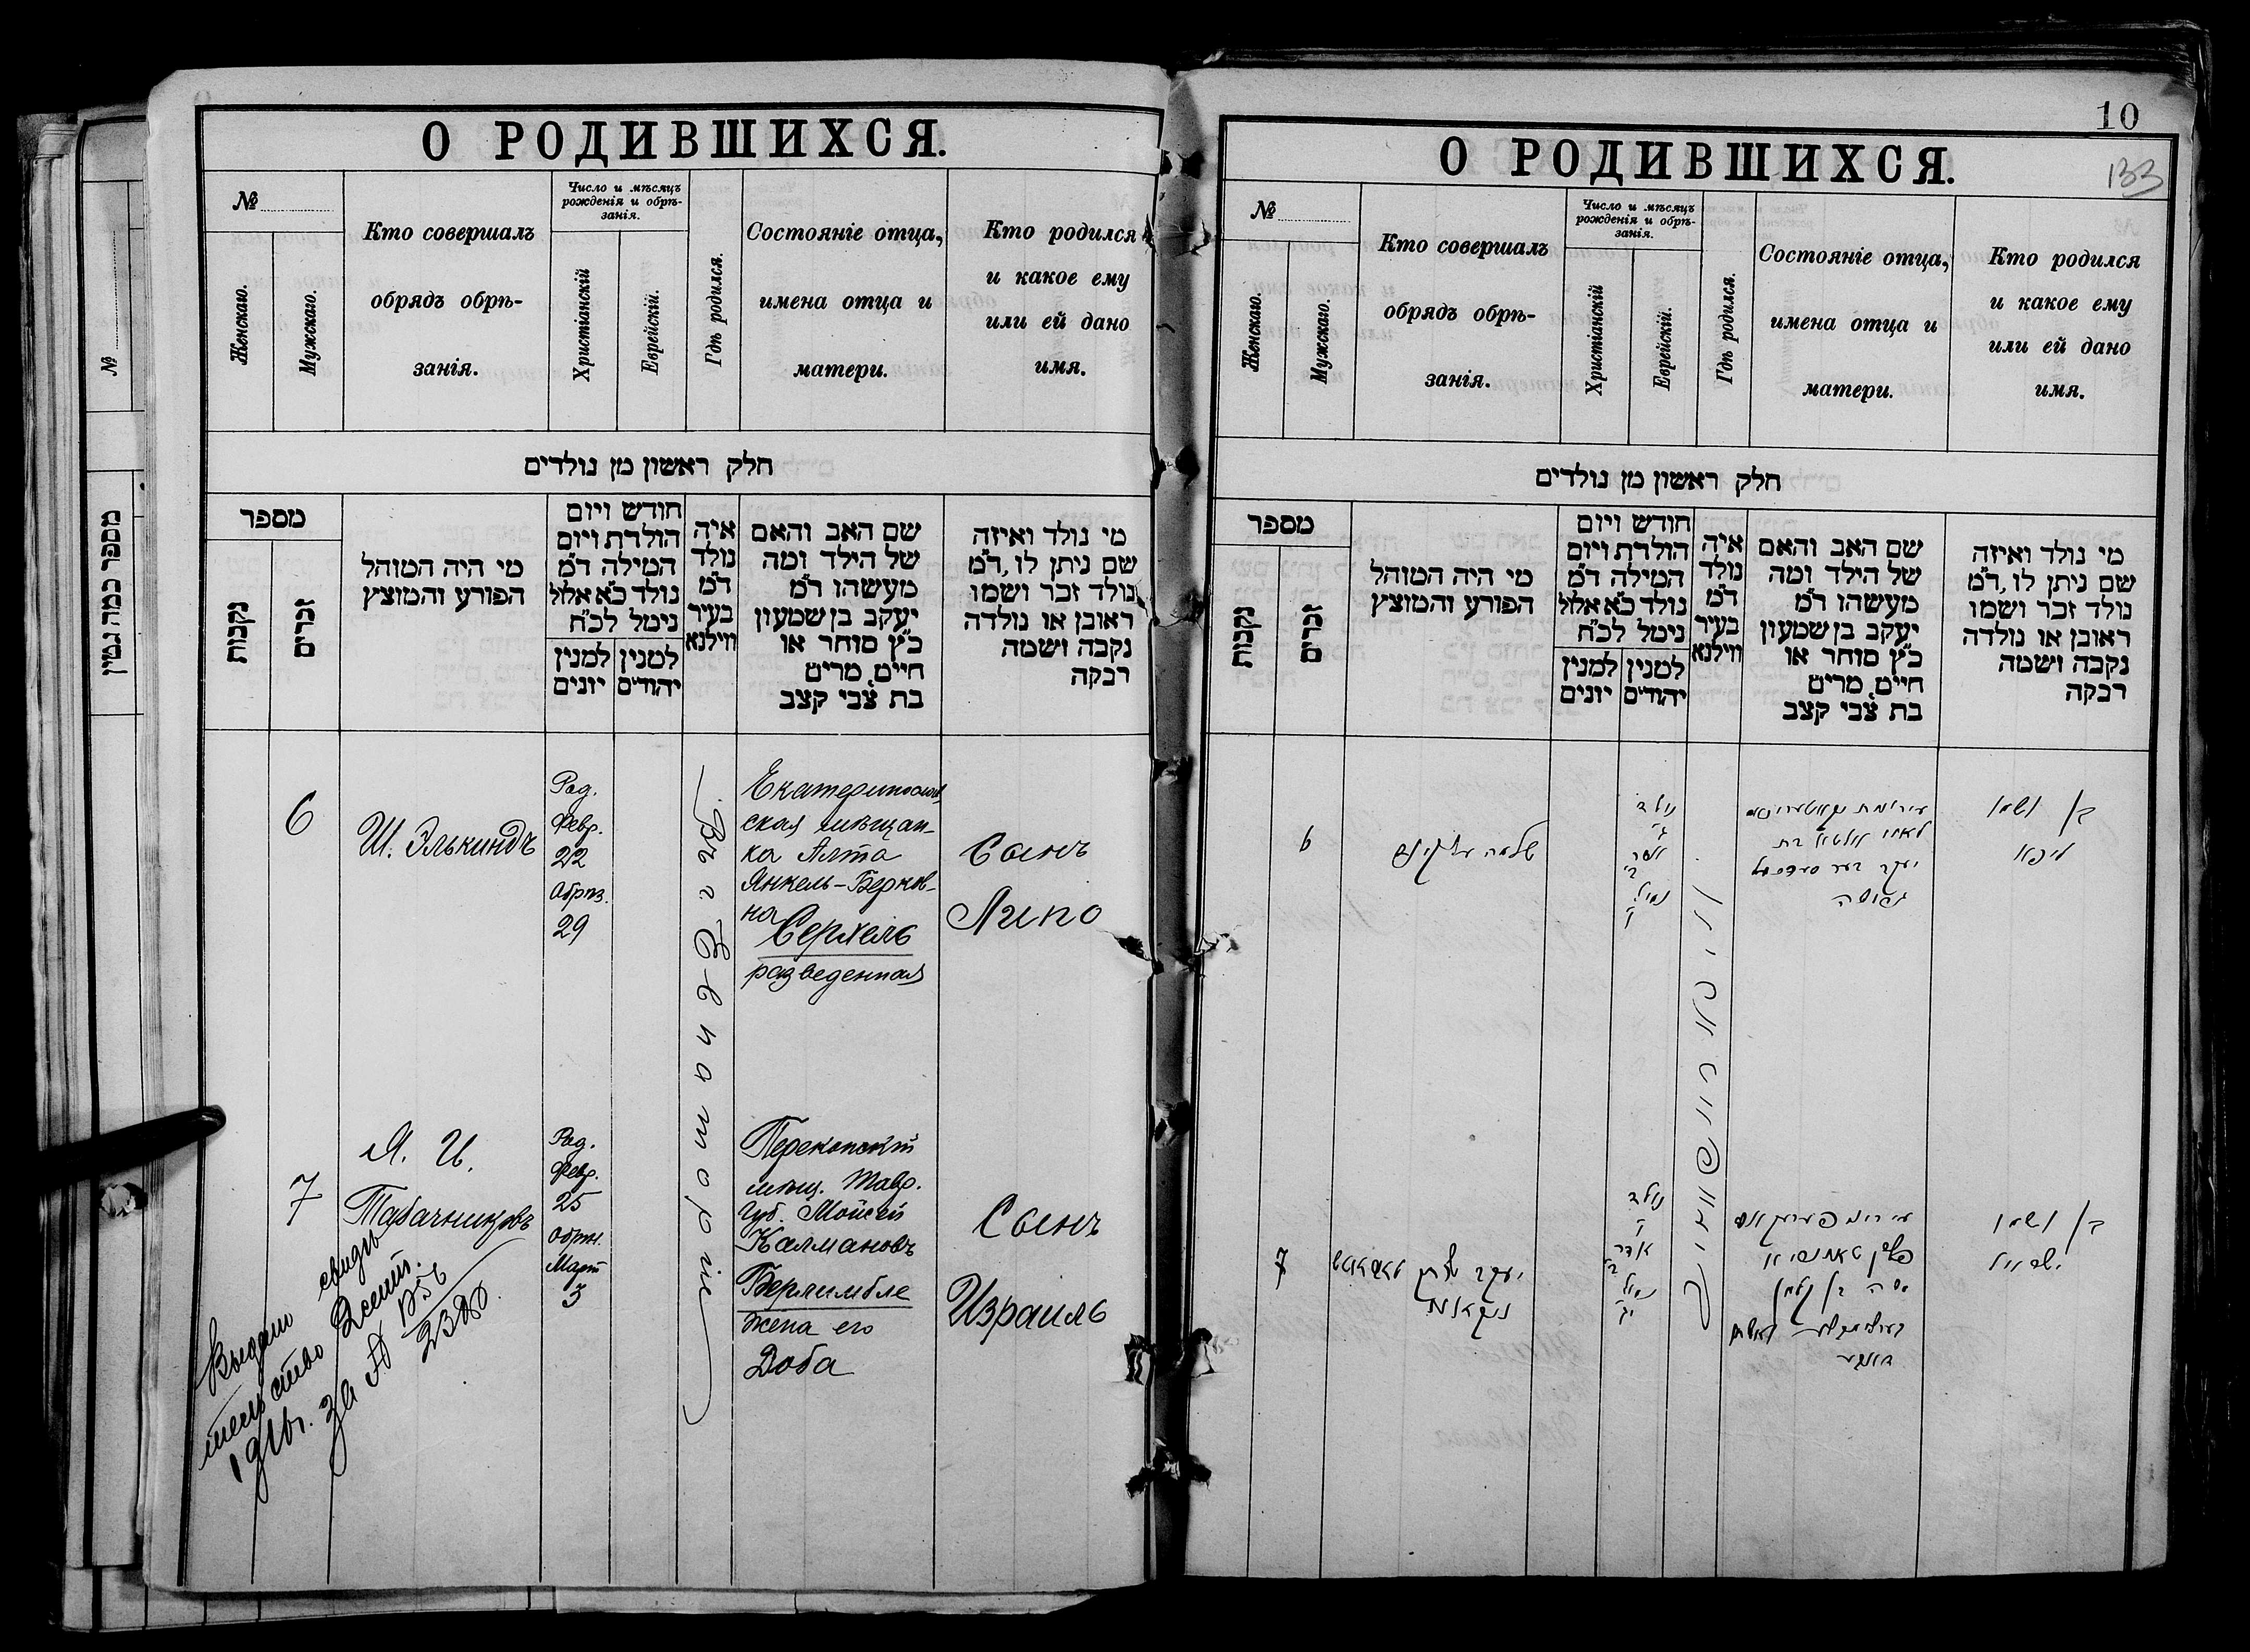 О РОДИВШИХСЯ.
№
Женскаго.
Мужскаго.
Кто совершалъ
обрядъ обрѣ-
занія.
Число и мѣсяцъ
рожденія и обрѣ-
занія.
Христіанскій
Еврейскій.
Гдѣ родился.
Состояніе отца,
имена отца и
матери.
Кто родился
и какое ему
или ей дано
имя.
חלק ראשון מן נולדים
מספר
נקבות
זכרים
מי היה המוהל
הפורע והמוצץ
חודש ויום
הולדת ויום
המילה ד״מ
נולד כ״א אלול
נימל לכ״ח
למנין
יונים
למנין
יהודים
איה
נולד
ד״מ
בעיר
ווילנא
שם האב והאם
של הילד ומה
מעשהו ד״מ
יעקב בן שמעון
כ״ץ סוחר או
חיים, מרים
בת צבי קצב
מי נולד ואיזה
שם ניתן לו, ד״מ
נולד זכר ושמו
ראובן או נולדה
נקבה ושמה
רבקה
6
Ш. Элькиндъ
Род.
Февр.
22
Обрѣз.
29
Въ г. Евпаторіи
Екатеринослав-
ская мѣщан-
ка Алта
Янкель-Берков-
на
Серхель
разведенная
Сынъ
Липо
7
Я. И.
Табачниковъ
Род.
Февр.
25
Обрѣз.
Март
3
Перекопскій
мѣщ. Тавр.
Губ. Мойсей
Калмановъ
Берлимбле
жена его
Доба
Сынъ
Израиль
Выдано свидѣ-
тельство
191 г. за №
№
מספר כמה גטין
10
133
О РОДИВШИХСЯ.
№
Женскаго.
Мужскаго.
Кто совершалъ
обрядъ обрѣ-
занія.
Число и мѣсяцъ
рожденія и обрѣ-
занія.
Христіанскій
Еврейскій.
Гдѣ родился.
Состояніе отца,
имена отца и
матери.
Кто родился
и какое ему
или ей дано
имя.
חלק ראשון מן נולדים
מספר
נקבות
זכרים
מי היה המוהל
הפורע והמוצץ
חודש ויום
הולדת ויום
המילה ד״מ
נולד כ״א אלול
נימל לכ״ח
למנין
יונים
למנין
יהודים
איה
נולד
ד״מ
בעיר
ווילנא
שם האב והאם
של הילד ומה
מעשהו ד״מ
יעקב בן שמעון
כ״ץ סוחר או
חיים, מרים
בת צבי קצב
מי נולד ואיזה
שם ניתן לו, ד״מ
נולד זכר ושמו
ראובן או נולדה
נקבה ושמה
רבקה
6
שלמה עלקינד
נולד
אדר
נמול
יעקב בער
גרושה
בן ושמו
ליפא
7
יעקב
נולד
אדר
נמול
משה בן קלמן
בן ושמו
ישראל